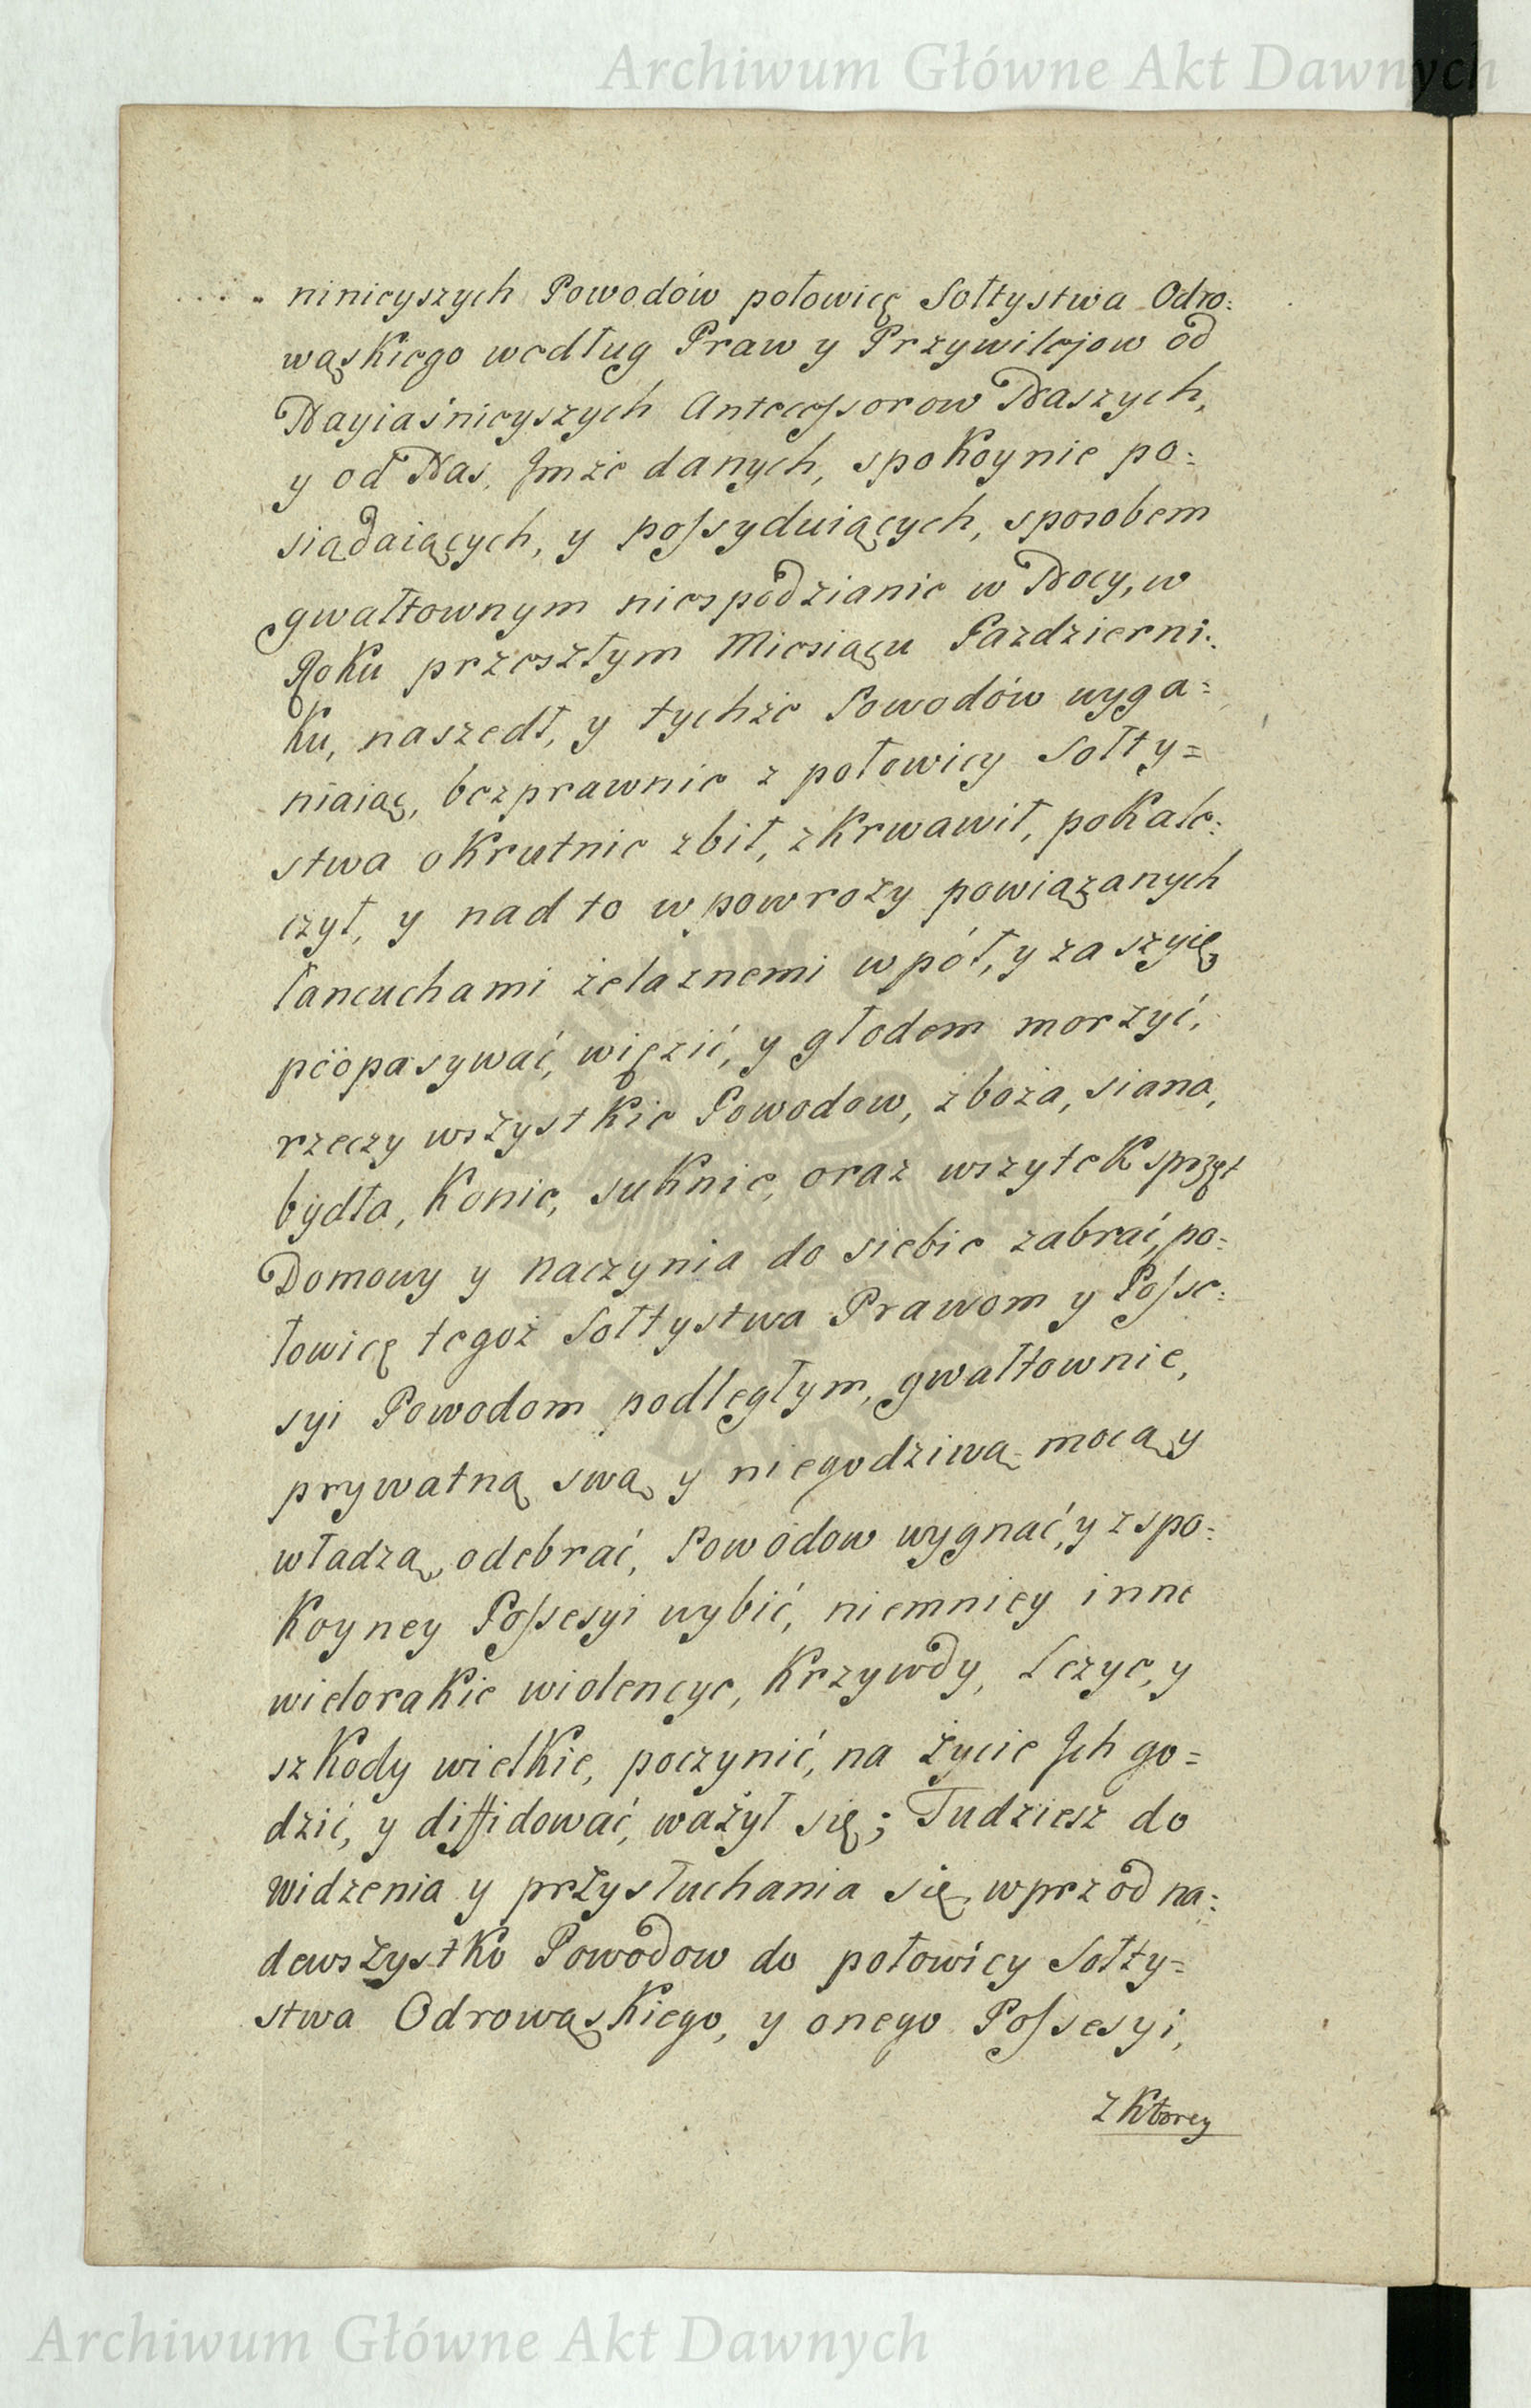 Archiwum Główne Akt Dawnych
ninieyszych Powodów połowicę Sołtystwa Odro:
wąskiego według Praw y Przywilejow od
Nayiaśnieyszych Antecessorow Naszych,
y od Nas, Jmże danych, spokoynie po:
siądaiących, y possyduiących, sposobem
gwałtownym niespodzianie w Nocy, w
Roku przeszłym Miesiącu Pazdzierni:
ku, naszedł, y tychże Powodów wyga=
niaiąc, bezprawnie z połowicy Sołty=
stwa okrutnie zbił, zkrwawił, pokale:
czył, y nad to w powrozy powiązanych
łancuchami żelaznemi wpół, y za szyię
poopasywać, więzić, y głodem morzyć,
rzeczy wszystkie Powodow, zboża, siana,
bydła, Konie, suknie, oraz wszytek sprzęt
Domowy y naczynia do siebie zabrać, po:
łowicę tegoż Sołtystwa Prawom y Posse:
syi Powodom podległym, gwałtownie,
prywatną swą y niegodziwą mocą y
władzą odebrać, Powodow wygnać, y z spo:
koyney Possesyi wybić, niemniey inne
wielorakie wiolencye, Krzywdy, Lezye, y
szkody wielkie, poczynić, na życie Jch go=
dzić, y diffidować, ważył się; Tudziesz do
widzenia y przysłuchania się wprzod na:
dewszystko Powodow do połowicy Sołty=
stwa Odrowąskiego, y onego Possesyi,
z Ktorey
Archiwum Główne Akt Dawnych